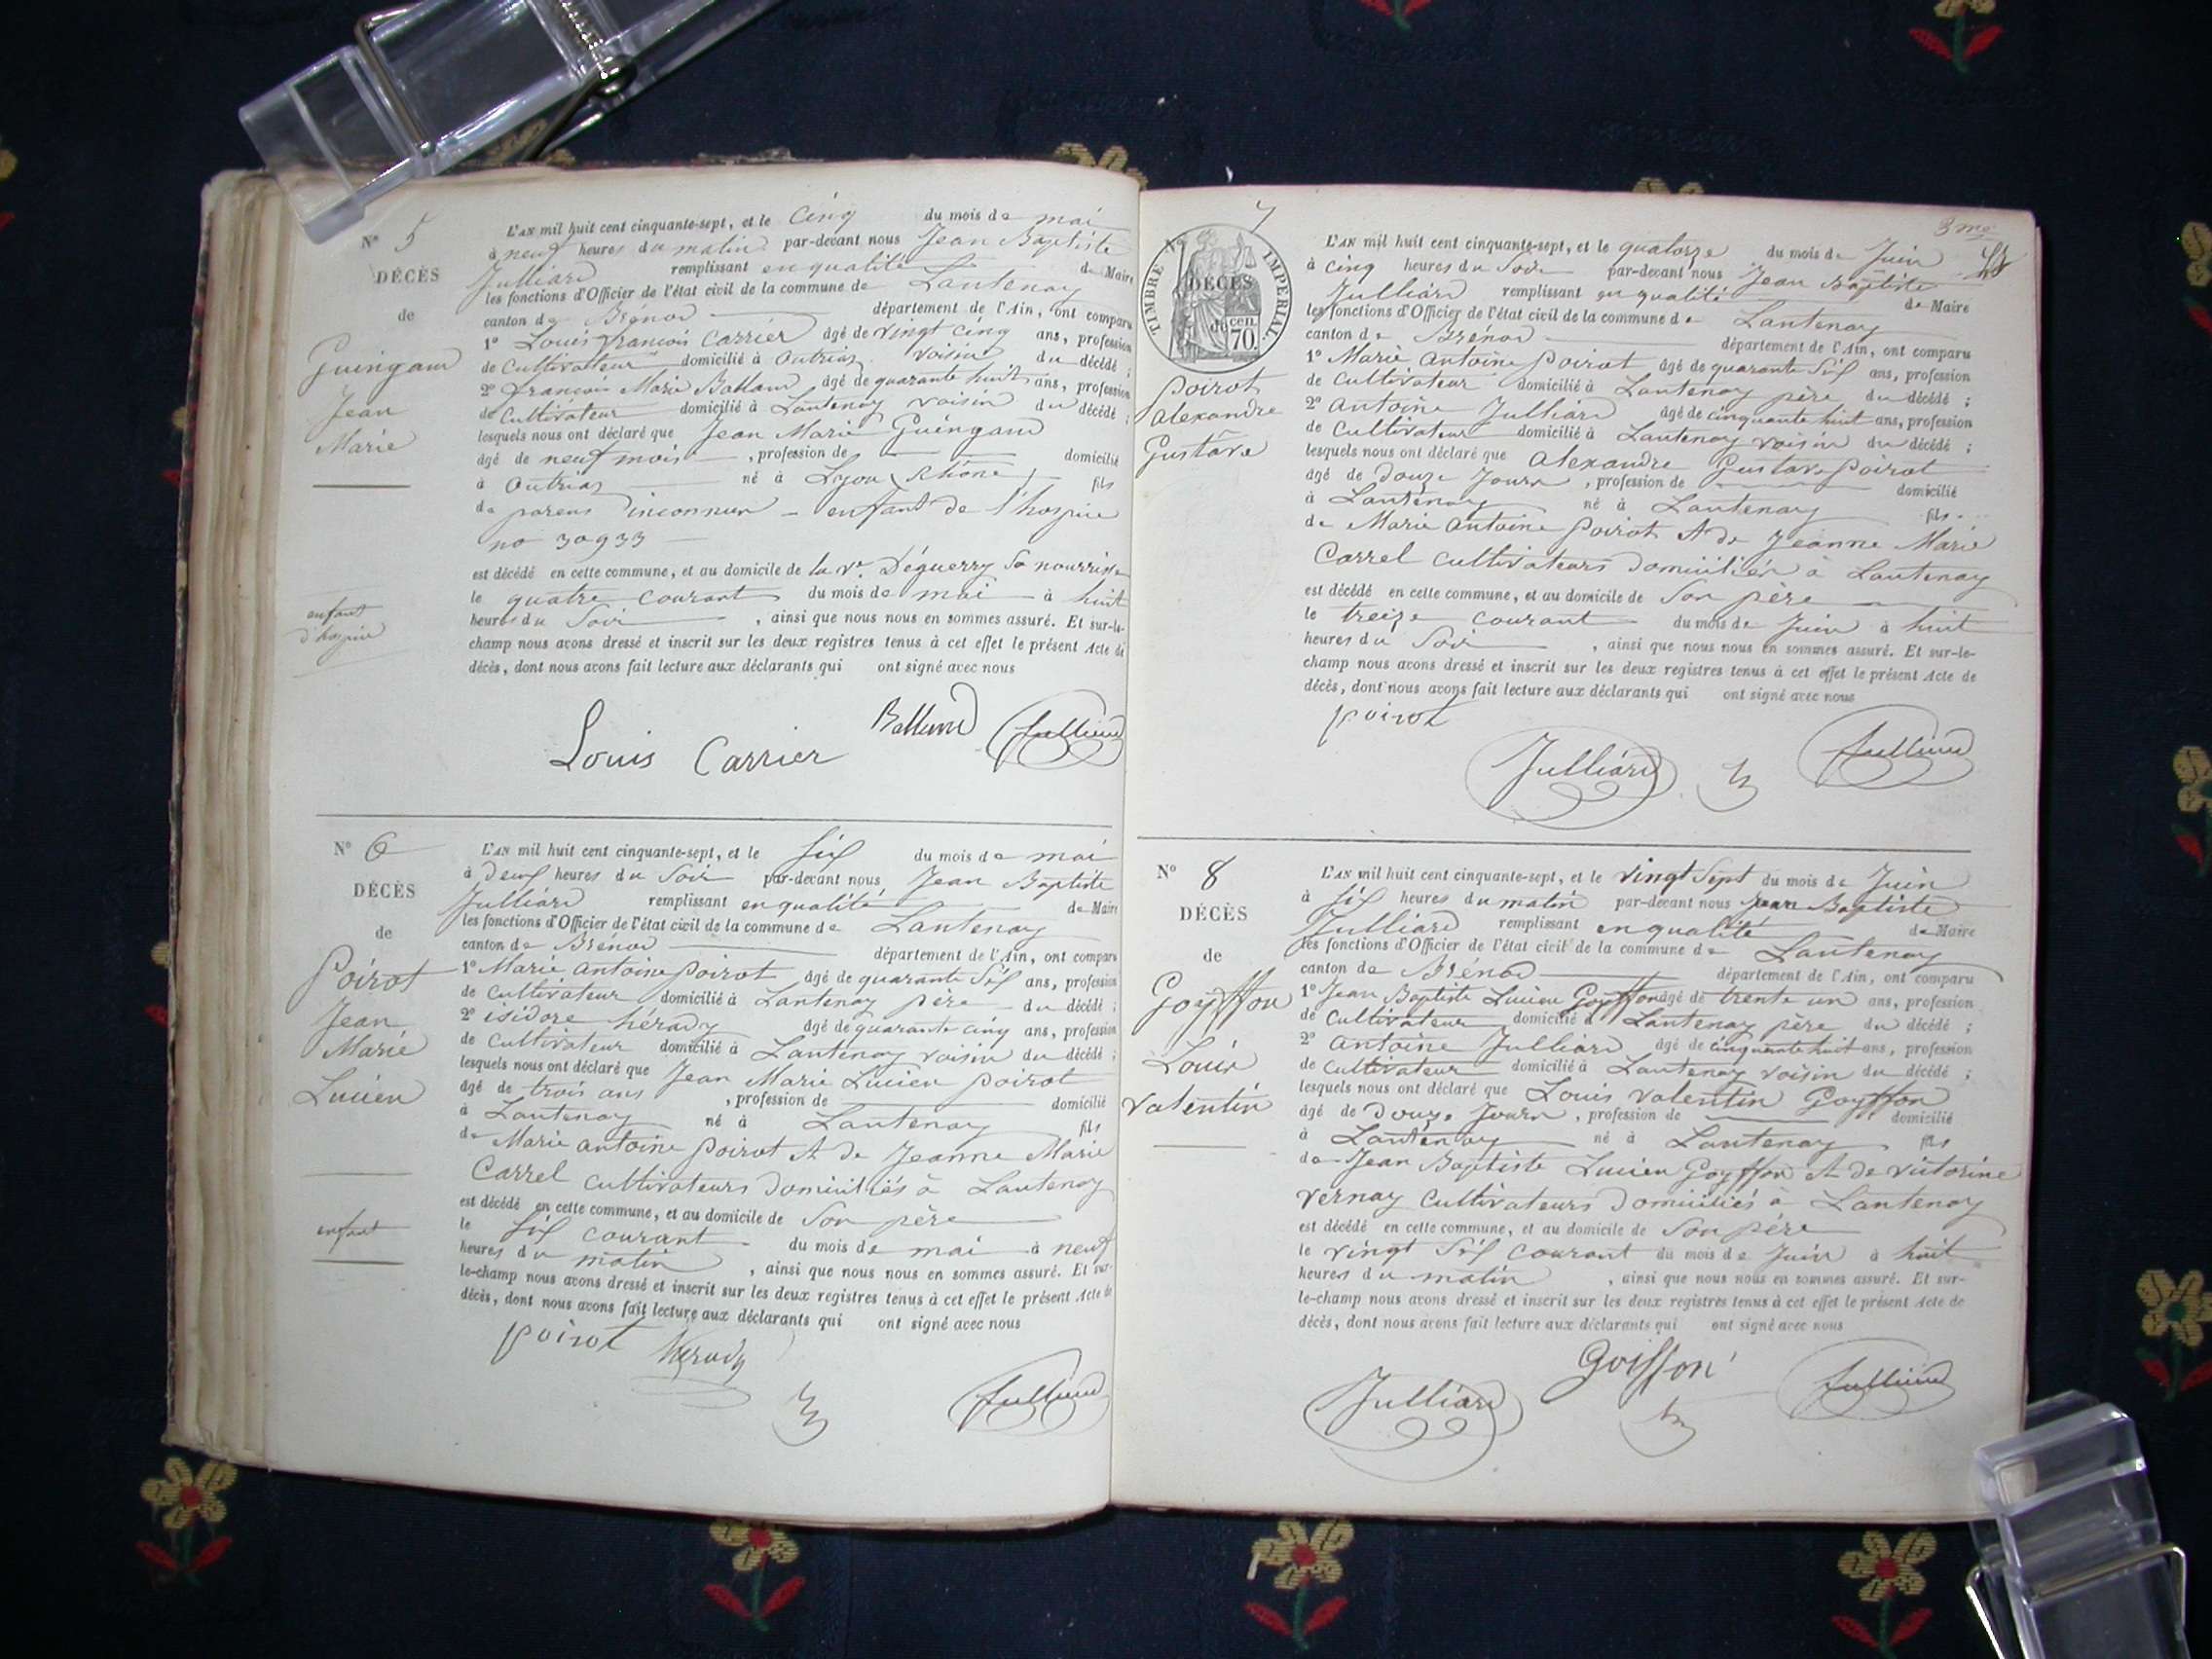 N° 5
DÉCÈS
de
Guingand
Jean
Marie
enfant
d'hospice
L'AN mil huit cent cinquante-sept, et le Cinq du mois de mai
à neuf heures du matin par-devant nous Jean Baptiste
Julliard remplissant en qualité de Maire
les fonctions d'Officier de l'état civil de la commune de Lantenay
canton de Brénod département de l'Ain, ont comparu
1° Louis françois Carrier âgé de vingt cinq ans, profession
de Cultivateur domicilié à Outriaz voisin du décédé ;
2° françois Marie Balland âgé de quarante huit ans, profession
de Cultivateur domicilié à Lantenay voisin du décédé ;
lesquels nous ont déclaré que Jean Marie Guingand
âgé de neuf mois , profession de domicilié
à Outriaz né à Lyon (Rhône) fils
de parens inconnus - enfant de l'hospice
no 30933
est décédé en cette commune, et au domicile de la Ve. Déguerry Sa nourrisse
le quatre courant du mois de mai à huit
heures du Soir , ainsi que nous nous en sommes assuré. Et sur-le-
champ nous avons dressé et inscrit sur les deux registres tenus à cet effet le présent Acte de
décès, dont nous avons fait lecture aux déclarants qui ont signé avec nous
Balland Julliard
Louis Carrier
N° 6
DÉCÈS
de
Poirot
Jean
Marie
Lucien
enfant
L'AN mil huit cent cinquante-sept, et le Six du mois de mai
à deux heures du Soir par-devant nous Jean Baptiste
Julliard remplissant en qualité de Maire
les fonctions d'Officier de l'état civil de la commune de Lantenay
canton de Brénod département de l'Ain, ont comparu
1° Marie antoine Poirot âgé de quarante Six ans, profession
de Cultivateur domicilié à Lantenay père du décédé ;
2° isidore hérady âgé de quarante cinq ans, profession
de cultivateur domicilié à Lantenay voisin du décédé ;
lesquels nous ont déclaré que Jean Marie Lucien Poirot
âgé de trois ans , profession de domicilié
à Lantenay né à Lantenay fils
de Marie antoine Poirot & De Jeanne Marie
Carrel cultivateurs domiciliés à Lantenay
est décédé en cette commune, et au domicile de Son père
le Six courant du mois de mai à neuf
heures du matin , ainsi que nous nous en sommes assuré. Et sur-
le-champ nous avons dressé et inscrit sur les deux registres tenus à cet effet le présent Acte de
décès, dont nous avons fait lecture aux déclarants qui ont signé avec nous
poirot hérady
Julliard
3me
N° 7
TIMBRE IMPÉRIAL
DÉCÈS
de
cen.
70.
Poirot
Alexandre
Gustave
L'AN mil huit cent cinquante-sept, et le quatorze du mois de Juin
à cinq heures du Soir par-devant nous Jean Baptiste
Julliard remplissant en qualité de Maire
les fonctions d'Officier de l'état civil de la commune de Lantenay
canton de Brénod département de l'Ain, ont comparu
1° Marie Antoine Poirot âgé de quarante Six ans, profession
de Cultivateur domicilié à Lantenay père du décédé ;
2° antoine Julliard âgé de cinquante huit ans, profession
de Cultivateur domicilié à Lantenay voisin du décédé ;
lesquels nous ont déclaré que Alexandre Gustave Poirot
âgé de douze Jours , profession de domicilié
à Lantenay né à Lantenay fils
de Marie antoine Poirot & de Jeanne Marie
Carrel cultivateurs domiciliés à Lantenay
est décédé en cette commune, et au domicile de Son père
le treize courant du mois de Juin à huit
heures du Soir , ainsi que nous nous en sommes assuré. Et sur-le-
champ nous avons dressé et inscrit sur les deux registres tenus à cet effet le présent Acte de
décès, dont nous avons fait lecture aux déclarants qui ont signé avec nous
poirot
Julliard Julliard
N° 8
DÉCÈS
de
Goyffon
Louis
valentin
L'AN mil huit cent cinquante-sept, et le vingt Sept du mois de Juin
à Six heures du matin par-devant nous Jean Baptiste
Julliard remplissant en qualité de Maire
les fonctions d'Officier de l'état civil de la commune de Lantenay
canton de Brénod département de l'Ain, ont comparu
1° Jean Baptiste Lucien Goyffon âgé de trente un ans, profession
de Cultivateur domicilié à Lantenay père du décédé ;
2° Antoine Julliard âgé de cinquante huit ans, profession
de Cultivateur domicilié à Lantenay voisin du décédé ;
lesquels nous ont déclaré que Louis valentin Goyffon
âgé de Douze Jours , profession de domicilié
à Lantenay né à Lantenay fils
de Jean Baptiste Lucien Goyffon & De victorine
vernay Cultivateurs Domiciliés à Lantenay
est décédé en cette commune, et au domicile de Son père
le vingt Six courant du mois de Juin à huit
heures du matin , ainsi que nous nous en sommes assuré. Et sur-
le-champ nous avons dressé et inscrit sur les deux registres tenus à cet effet le présent Acte de
décès, dont nous avons fait lecture aux déclarants qui ont signé avec nous
Goiffon
Julliard Julliard